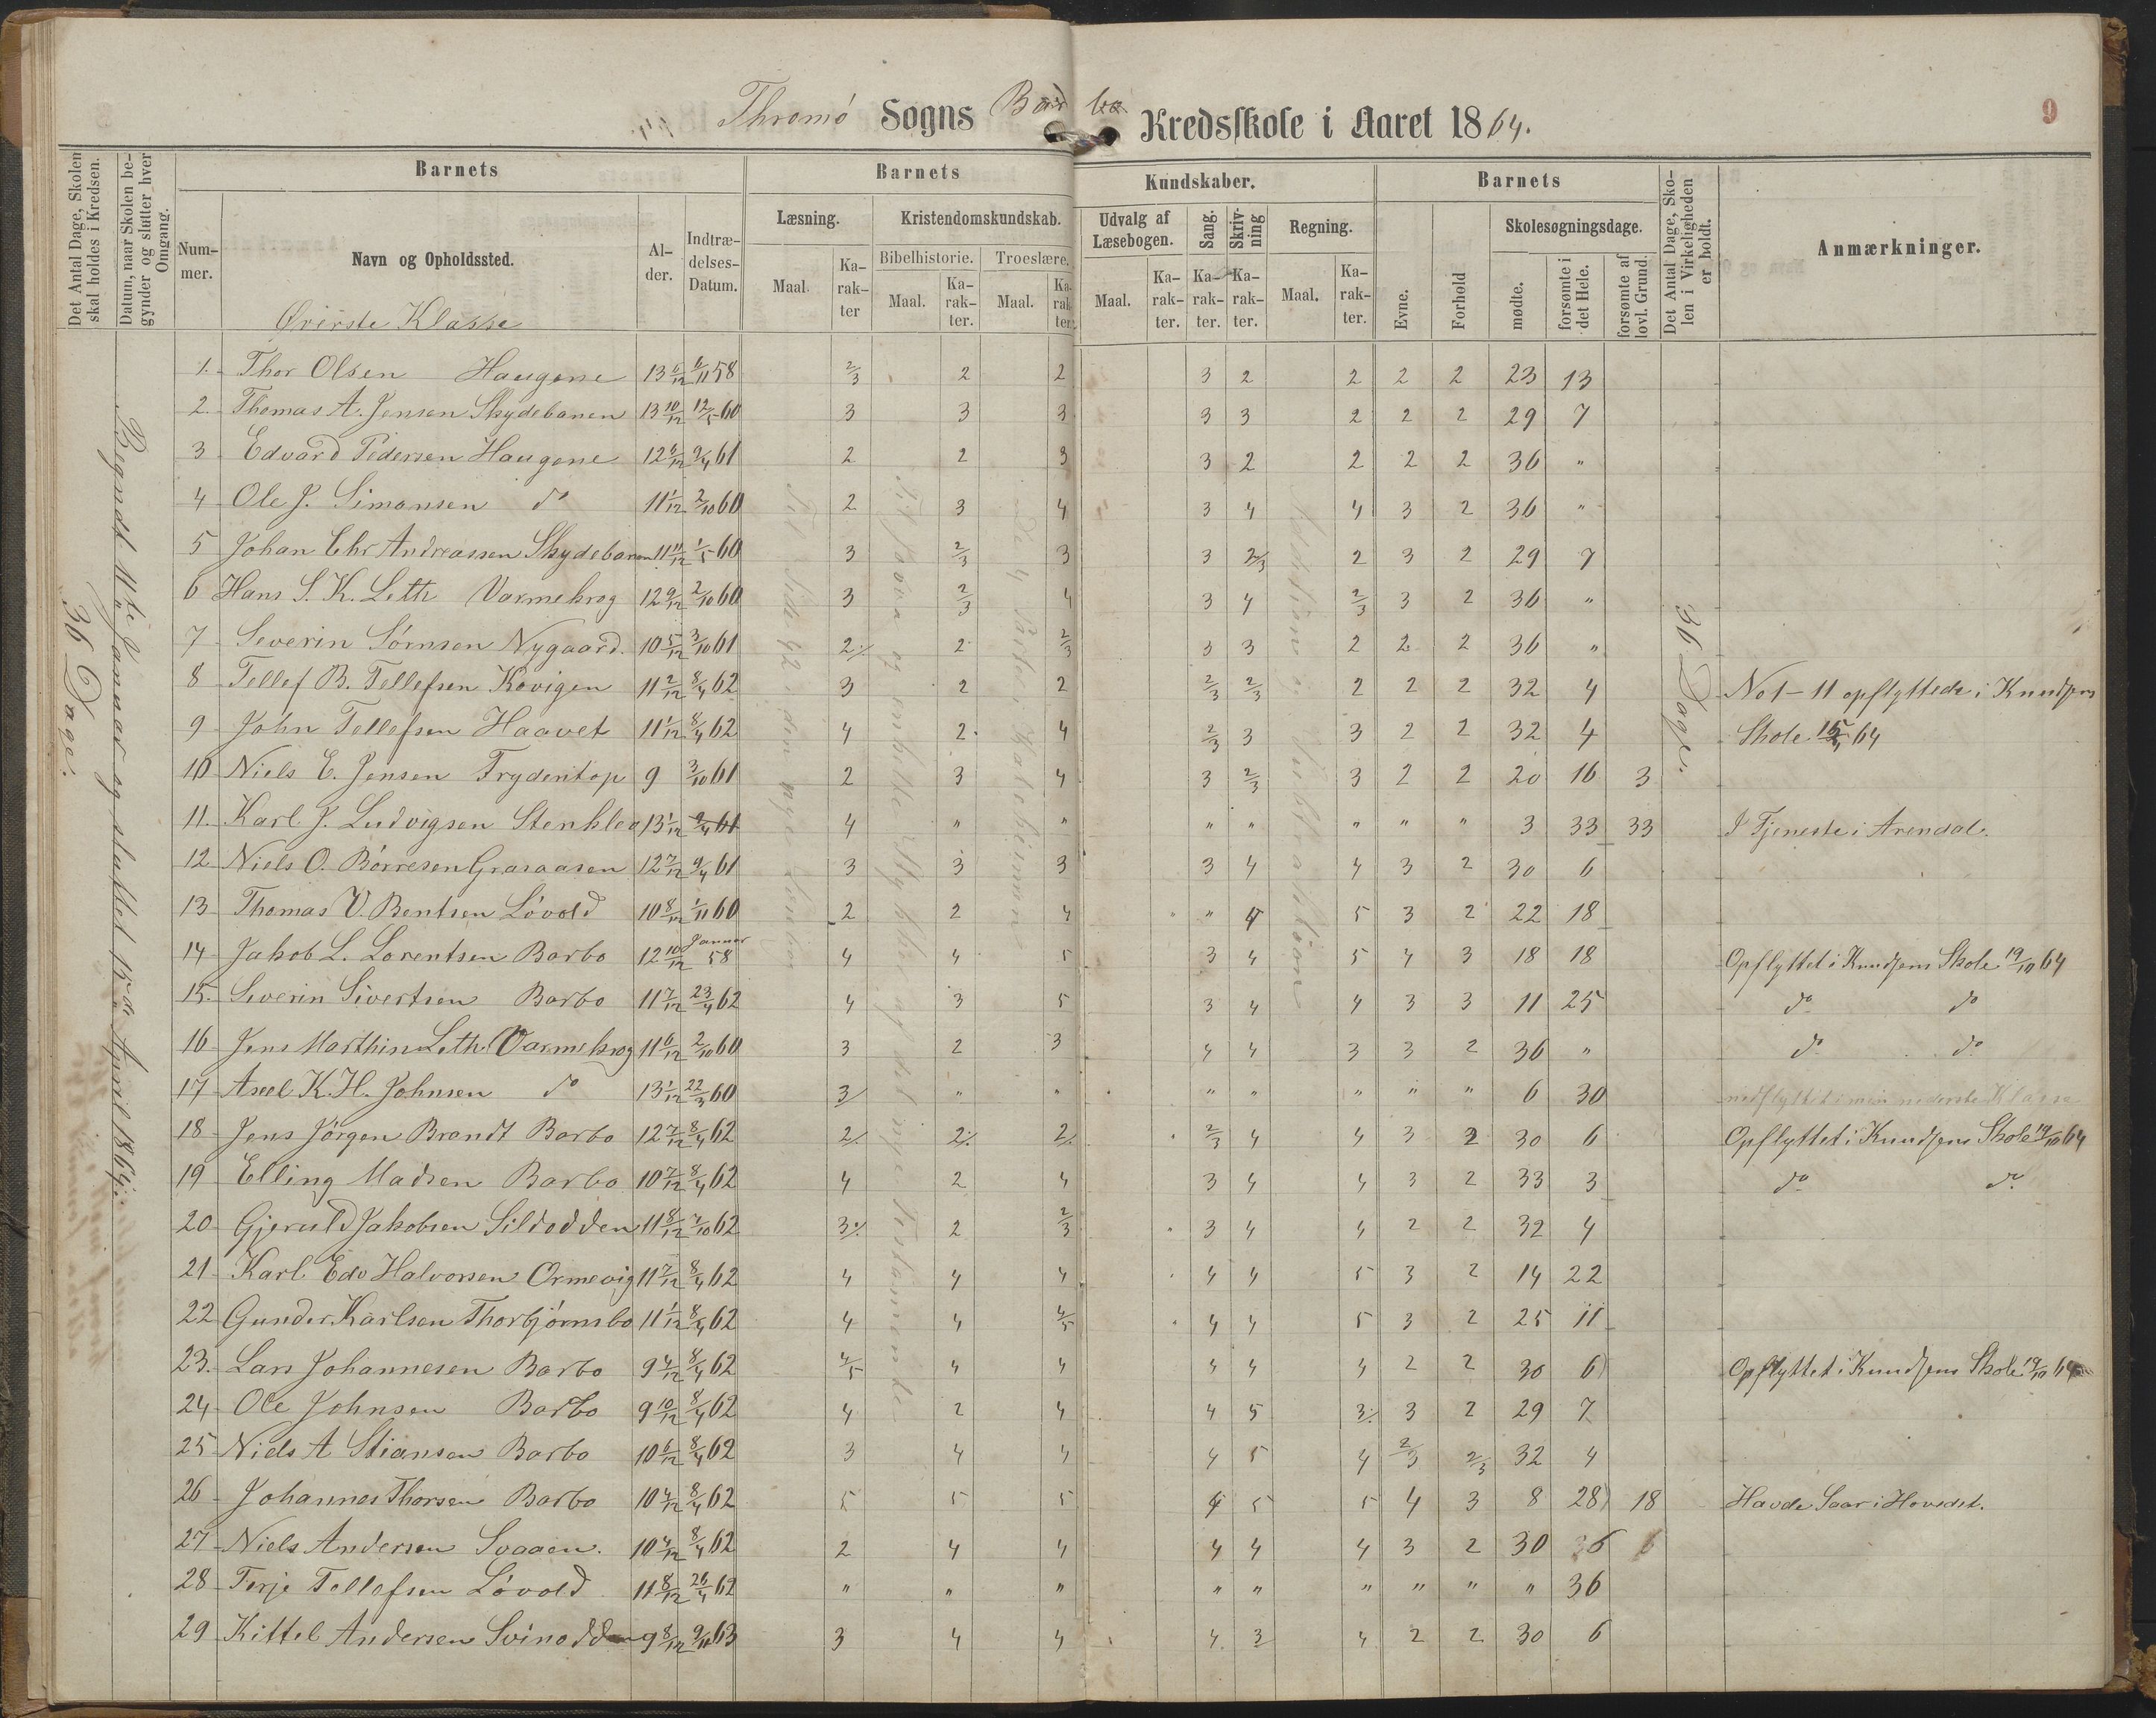 Thromø Sogns Barbo Kredsskole i Aaret 1864.
9
Det Antal Dage, Skolen skal holdes i Kredsen.
Datum, naar Skolen begynder og slutter hver Omgang.
Barnets
Nummer.
Navn og Opholdssted.
Alder.
Indtrædelses-Datum.
Barnets Kundskaber.
Læsning.
Maal.
Karakter
Kristendomskundskab.
Bibelhistorie.
Maal.
Karakter.
Troeslære.
Maal.
Karakter.
Udvalg af Læsebogen.
Maal.
Karakter.
Sang.
Karakter.
Skrivning
Karakter.
Regning.
Maal.
Karakter.
Barnets
Evne.
Forhold
Skolesøgningsdage.
mødte.
forsømte i det Hele.
forsømte af lovl. Grund.
Det Antal Dage, Skolen i Virkeligheden er holdt.
Anmærkninger.
Øverste Klasse
36 Dage.
Begyndt 11te Januar og sluttet 15de April 1864.
36 Dage.
1. Thor Olsen Haugene 13 6/12 6/11 58 2/3 2 2 3 2 2 2 2 23 13
2. Thomas A. Jensen Skydebanen 13 10/12 12/5 60 3 3 3 3 3 2 2 2 29 7
3 Edvard Pedersen Haugene 12 6/12 9/4 61 2 2 3 3 2 2 2 2 36 "
4 Ole J. Simonsen do 11 1/12 2/10 60 2 3 4 3 4 4 3 2 36 "
5 Johan Chr Andreassen Skydebanen 11 11/12 1/5 60 3 2/3 3 3 2/3 2 3 2 29 7
6 Hans S. K. Leth Varmekrog 12 9/12 2/10 60 3 2/3 4 3 4 2/3 3 2 36 "
7 Severin Sørnsen Nygaard. 10 5/12 3/10 61 2 ./. 2 2/3 3 3 2 2 2 36 "
8 Tellef B. Tellefsen Kovigen 11 2/12 8/4 62 3 2 2 2/3 2/3 2 2 2 32 4 No 1 - 11 opflyttede i Knudsens
9 John Tellefsen Haavet 11 1/12 8/4 62 4 2 4 2/3 3 3 2 2 32 4 Skole 15/4 64
10 Niels E. Jensen Frydentop 9 3/10 61 2 3 4 3 2/3 3 2 2 20 16 3
11. Karl J. Ludvigsen Stenklev 13 1/12 9/4 61 4 " " " " " " " 3 33 33 I Tjeneste i Arendal.
12 Niels O. Børresen Grasaasen 12 7/12 9/4 61 3 3 3 3 4 4 3 2 30 6
13 Thomas V. Bentsen Løvold 10 8/12 1/11 60 2 2 4 " 4 5 3 2 22 18
14 Jakob L. Lorentsen Barbo 12 10/12 Januar 58 4 4 5 3 4 5 4 3 18 18 Opflyttet i Knudsens Skole 19/10 64
15. Severin Sivertsen Barbo 11 7/12 23/4 62 4 3 5 3 4 4 3 3 11 25 do do
16 Jens Marthin Leth Varmekrog 11 6/12 2/10 60 3 2 3 4 4 3 3 2 36 " do do
17 Axel K. H. Johnsen do 13 1/12 22/3 60 3/ " " " " " " " 6 30 nedflyttet i min nederste Klasse
18 Jens Jørgen Brandt Barbo 12 7/12 8/4 62 2 ./. 2 ./. 2 ./. 2/3 4 4 3 2 30 6 Opflyttet i Knudsens Skole 19/10 64
19 Elling Madsen Barbo 10 7/12 8/4 62 4 2 4 3 4 4 3 2 33 3 do do
20 Gjeruld Jakobsen Sildodden 11 8/12 7/10 62 3 ./. 2 2/3 3 4 4 2 2 32 4
21 Karl Edv Halvorsen Ormevig 11 7/12 8/4 62 4 4 4 4 4 5 3 2 14 22
22 Gunder Karlsen Thorbjørnsbo 11 1/12 8/4 62 4 4 4/5 4 4 5 3 2 25 11
23. Lars Johannesen Barbo 9 4/12 8/4 62 4/5 4 4 4 4 4 2 2 30 6 Opflyttet i Knudsens Skole 19/10 64
24 Ole Johnsen Barbo 9 10/12 8/4 62 4 2 4 4 5 3 ./. 3 2 29 7
25 Niels A Stiansen Barbo 10 6/12 8/4 62 3 4 4 4 5 4 2/3 2/3 32 4
26 Johannes Thorsen Barbo 10 4/12 8/4 62 5 5 5 4 5 5 4 3 8 28 18 Havde Saar i Hovedet.
27 Niels Andersen Svaaen. 10 4/12 8/4 62 2 4 4 4 4 4 3 2 30 6
28 Terje Tellefsen Løvold 11 8/12 26/4 62 " " " " " " " " " 36
29 Kittel Andersen Svinodden 9 8/12 9/11 63 3 4 4 4 3 4 2 2 30 6